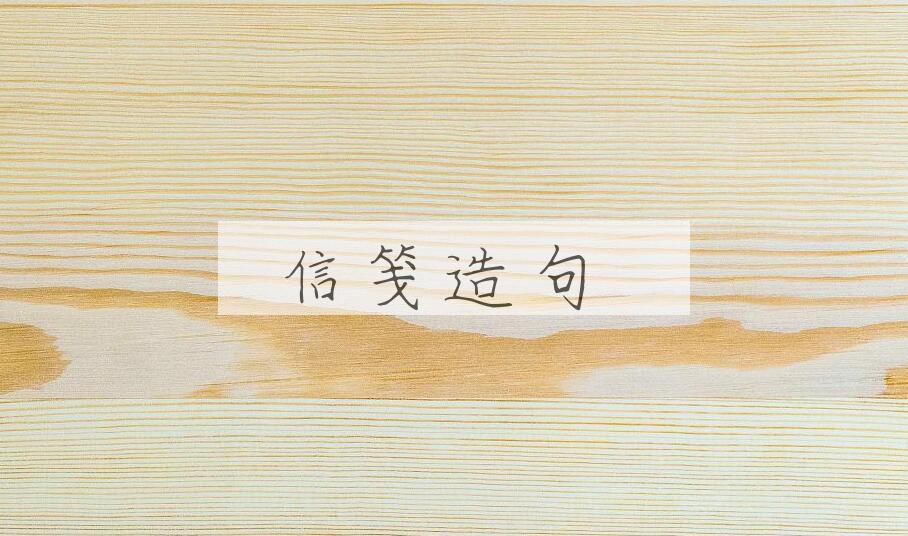 信笺造句